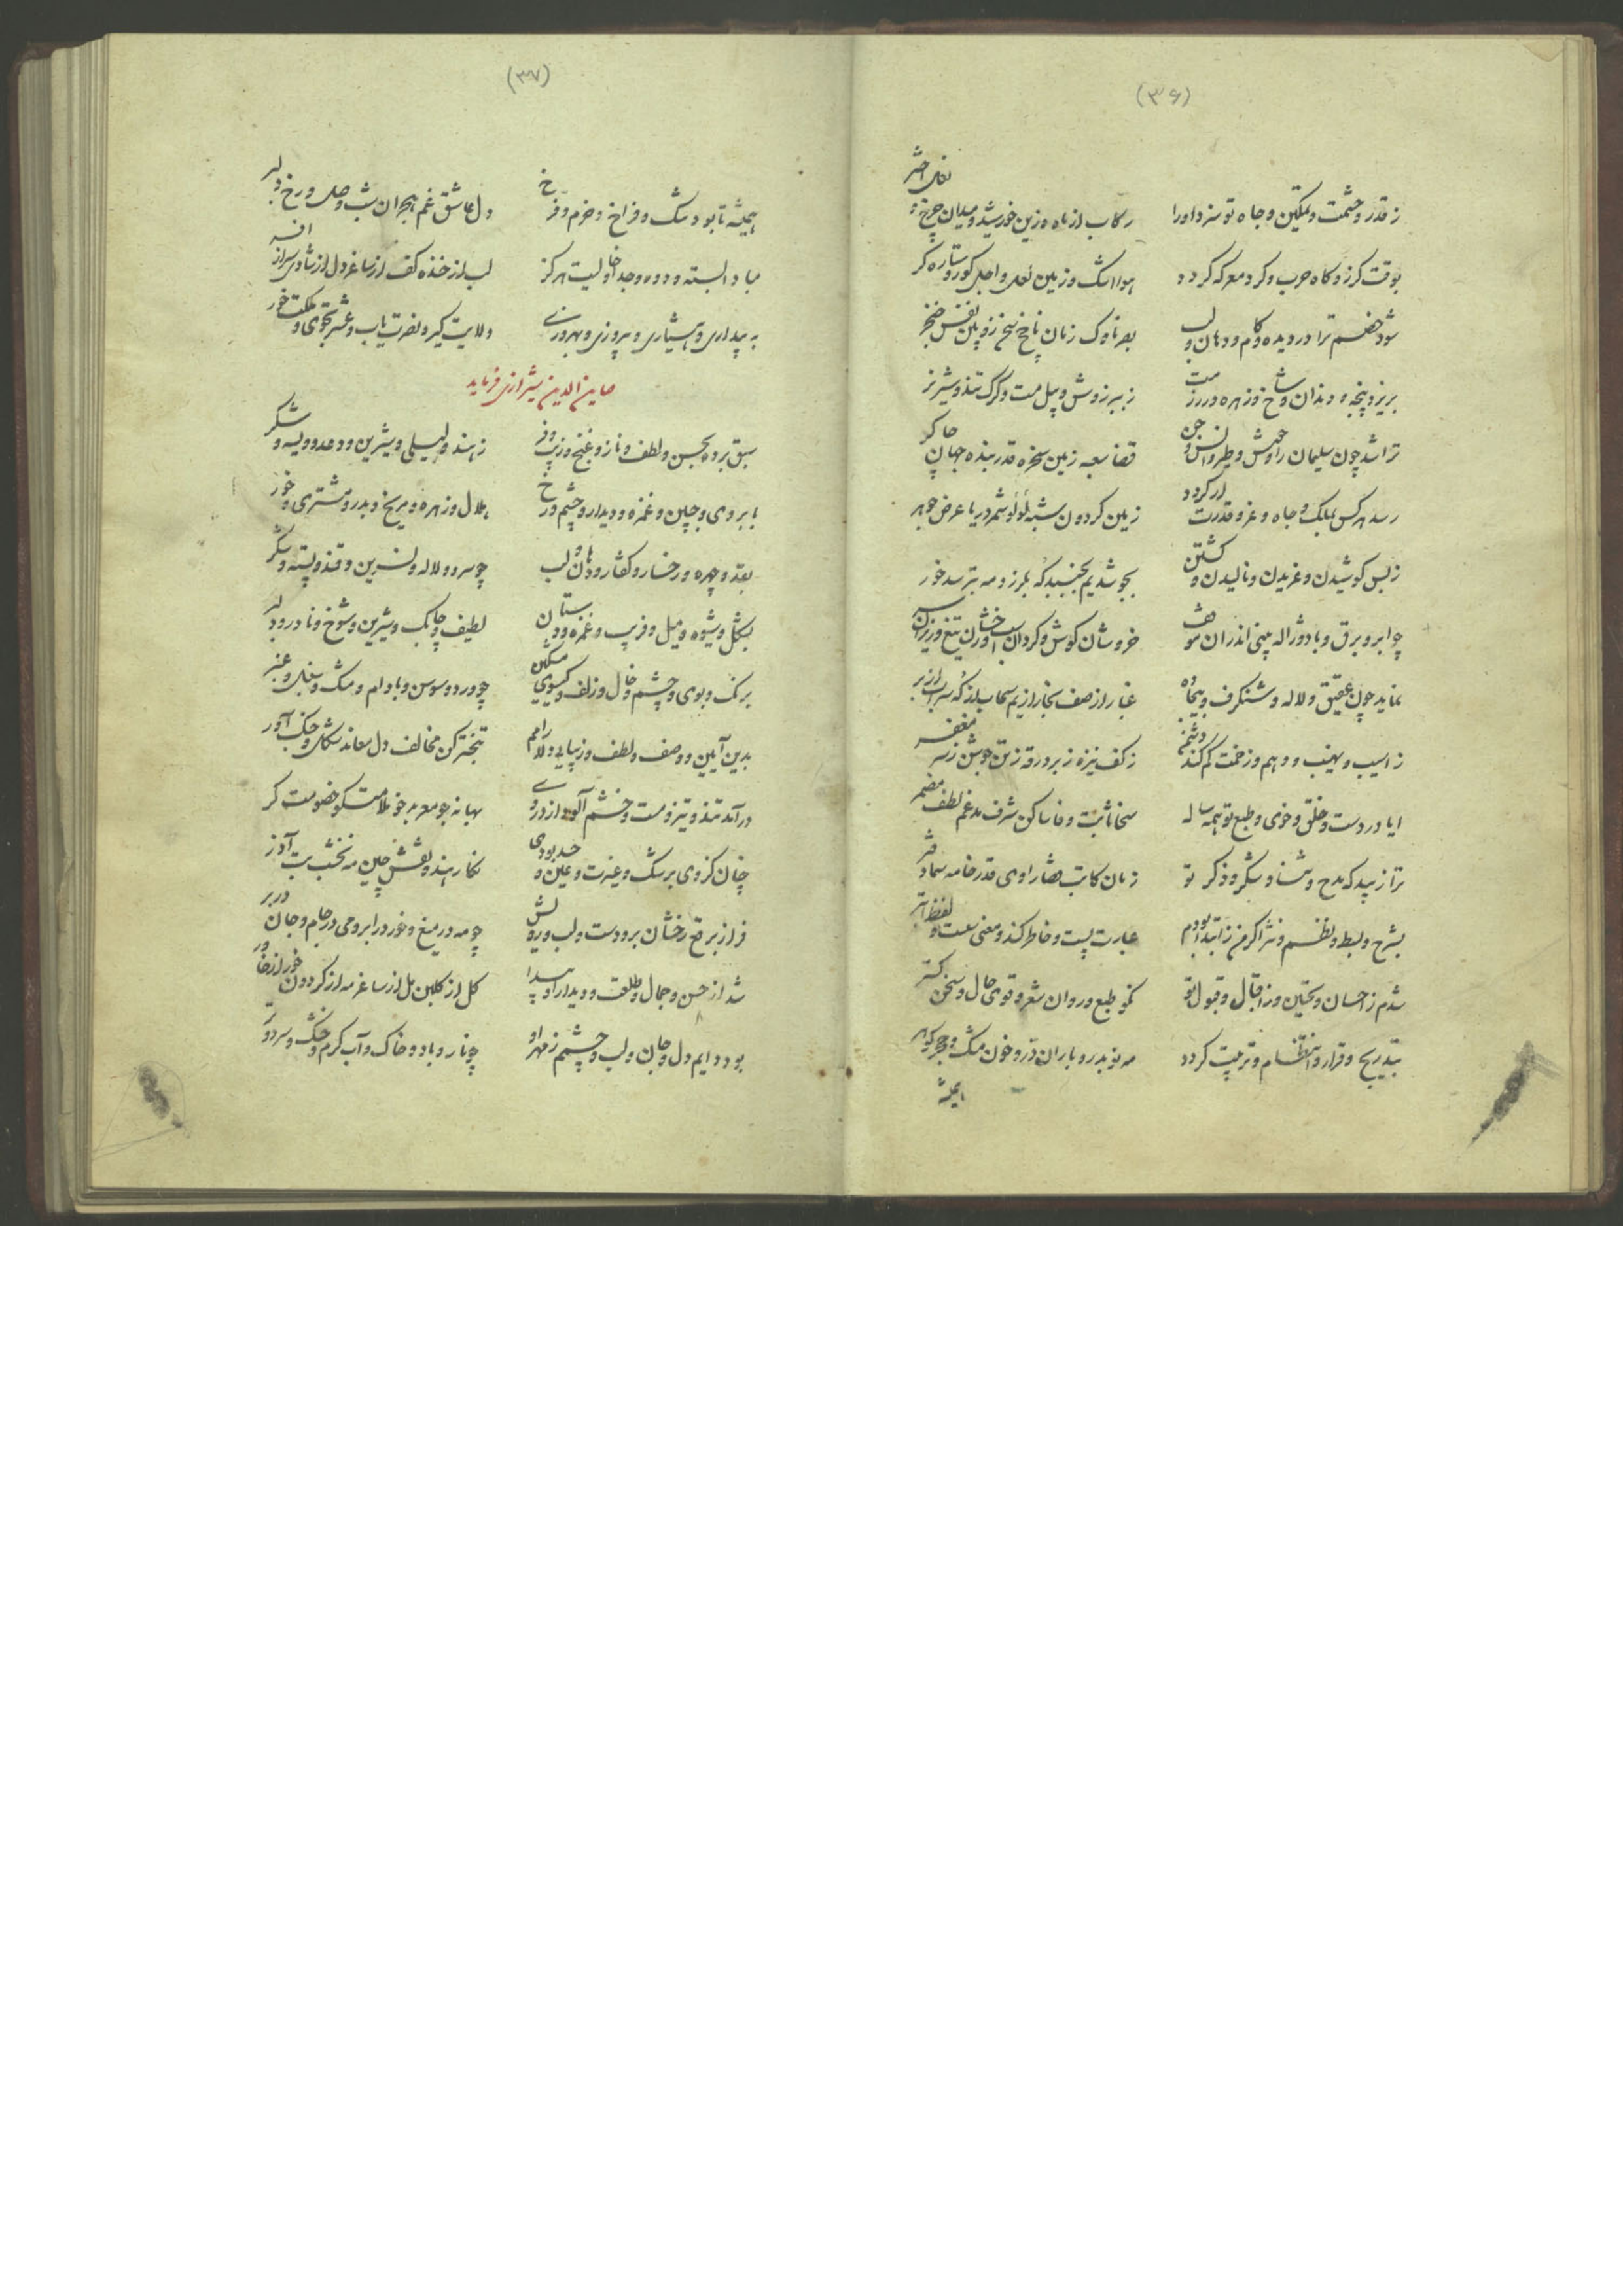 (۳۶)
ز قدر و حشمت و تمکین و جاه تو سزد او را رکاب از ماه و زین خورشید و میدان چرخ و نعل اختر
بوقت کرز و کاه حرب و کرد معرکه کردد هوا اشک و زمین لعل و اجل کور و ستاره کر
شود خصم ترا در دیده و کام و دهان و لب بصر ناوک زبان ناخج زنخ زوبین نفس خنجر
بریزد پنجه و دندان و شاخ و زهره در رزمت ز ببر زوش و پیل مست و کرک تند و شیر نر
ترا شد چون سلیمان را وحش و طیر و انس و جن قضا سعبه زمین سخره قدر بنده جهان چاکر
رسد هر کس بملک و جاه و عز و قدرت ار کردد زمین کردون شبه لؤلؤ شمر دریا عرض جوهر
ز بس کوشیدن و غریدن و نالیدن و کشتن بجوشد یم بجنبد که بلرزد مه بترسد خور
چو ابر و برق و باد و ژاله بینی اندران موقف خروشان کوش و کردان اسب و رخشان تیغ و ریزان سر
نماید چون عقیق و لاله و شنکرف و بیجاده غبار از صف بخار از یم سحاب از که سراب از بر
ز اسیب و نهیب و وهم و زخمت کم کند دشمن ز کف نیزه ز بر درقه ز تن جوشن ز سر مغفر
ایا در دست و خلق و خوی و طبع تو همه ساله سخا ثابت وفا ساکن شرف مدغم لطف مضمر
ترا زیبد که مدح و ثنا و شکر و ذکر تو زمان کاتب قضا راوی قدر خامه سما دفتر
بشرح و بسط و نظم و نثر اکر من ز ابتدا بودم عبارت پست و خاطر کند و معنی سست و لفظ ابتر
شدم ز احسان و تحسین و ز اقبال و قبول تو نکو طبع و روان شعر و قوی حال و سخن کستر
بتدریج و قرار و انتظام و تربیت کردد مه نو بدر و باران در و خون مشک و حجر کوهر
همیشه
(۳۷)
همیشه تا بود تنک و فراخ و خرم و فرخ دل عاشق غم هجران شب وصل و رخ دلبر
مبادا بسته و دور و جدا و خالیت هرکز لب از خنده کف از ساغر دل از شادی سر از افسر
به بیداری و هشیاری و پیروزی و بهروزی ولایت کیر و نصرت یاب و عشرت جوی و ملکت خور
صاین الدین شیرازی فرماید
سبق برده بحسن و لطف و ناز و غنج و زیب و فر ز هند و لیلی و شیرین و دعد و ویسه و شکر
بابروی و جبین و غمزه و دیدار و چشم و رخ هلال و زهره و مریخ و بدر و مشتری و خور
بقد و چهره و رخسار و کفتار و دهان و لب چو سرو و لاله و نسرین و قند و پسته و شکر
بشکل و شیوه و میل و فریب و غمزه و دستان لطیف و چابک و شیرین و شوخ و نادر و دلبر
برنک و بوی و چشم و خال و زلف و کیسوی مشکین چو ورد و سوسن و بادام و مشک و سنبل و عنبر
بدین آیین و وصف و لطف و زیبایی و لارامم تبختر کن مخالف دل معاند شکل و جنک آور
درآمد تند و تیز و مست و خشم آلود از در وی بهانه جو معربد خو ملامت کو خصومت کر
چنان کز وی برشک و غیرت و غبن و حسد بودی نکار هند و نقش چین مه نخشب بت آذر
فراز برقع رخشان بر و دست و لب و رویش چو مه در میغ و خور در ابر و می در جام و جان در بر
شد از حسن و جمال و طلعت و دیدار او پیدا کل از کلبن مل از ساغر مه از کردون خور از خاور
بود دایم دل و جان و لب و چشمم ز مهر او چو نار و باد و خاک و آب کرم و خشک و سرد و تر